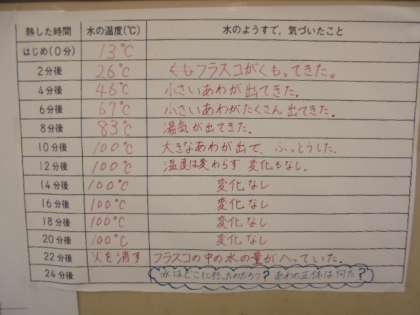 熱した時間 水の温度(℃) 水のようすで,気づいたこと
はじめ(0分) 13℃
2分後 26℃ くもフラスコがくもってきた。
4分後 46℃ 小さいあわが出てきた。
6分後 67℃ 小さいあわがたくさん出てきた。
8分後 83℃ 湯気が出てきた。
10分後 100℃ 大きなあわが出て、ふっとうした。
12分後 100℃ 温度は変わらず 変化もなし。
14分後 100℃ 変化なし
16分後 100℃ 変化なし
18分後 100℃ 変化なし
20分後 100℃ 変化なし
22分後 火を消す フラスコの中の水の量がへっていた。
24分後 水はどこに行ったのだろう? あわの正体は何だ?